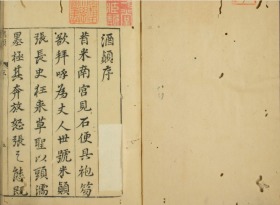 酒顛序
昔米南宮見石便具袍笏
欲拜呼為丈人世號米顛
張長史狂来草聖以頭濡
墨極其奔放怒張之態既